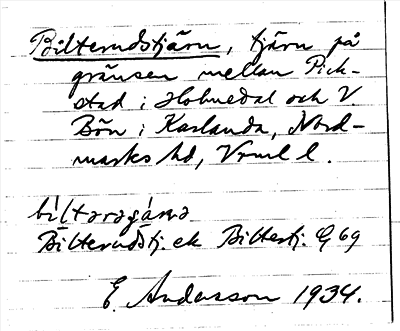 Bilterudstjärn, tjärn på
gränsen mellan Pick-
stad i Holmedal och V.
Bön i Karlanda, Nord-
marks hd, Vrml l.
Bilterudstj. ek Biltestj. G 69
E. Andersson 1934.